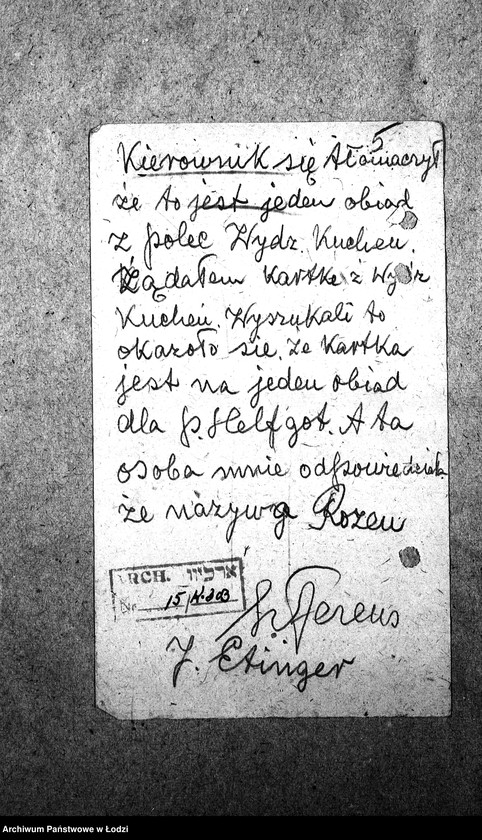 5
Kierownik się tłómaczył
że to jest jeden obiad
z polec Wydz. Kuchen.
Żądałem kartkę z Wydz
Kuchen. Wyszukali to
okazoło sie. że kartka
jest na jeden obiad
dla P. Helfgot. A ta
osoba mnie odpowiedziała
że nazywa Rozen
ARCH. ארכיוו
No. 15/
J. Etinger
Archiwum Państwowe w Łodzi